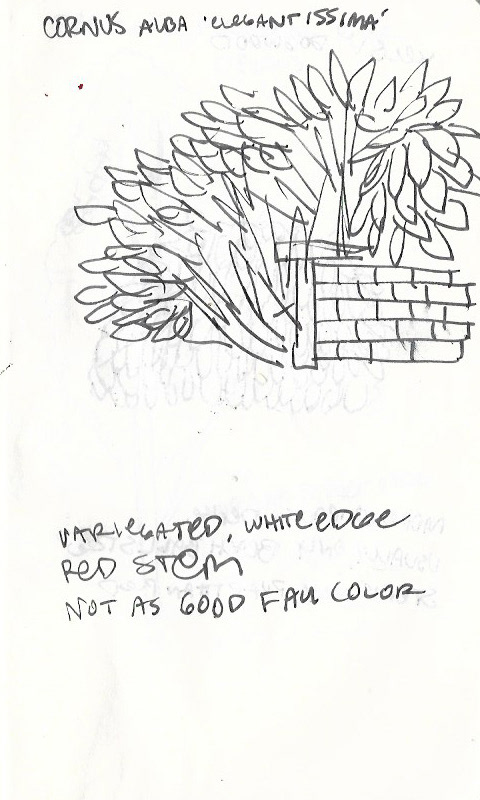 CORNUS ALBA 'ELEGANTISSIMA'
VARIEGATED, WHITE EDGE
RED STEM
NOT AS GOOD FALL COLOR